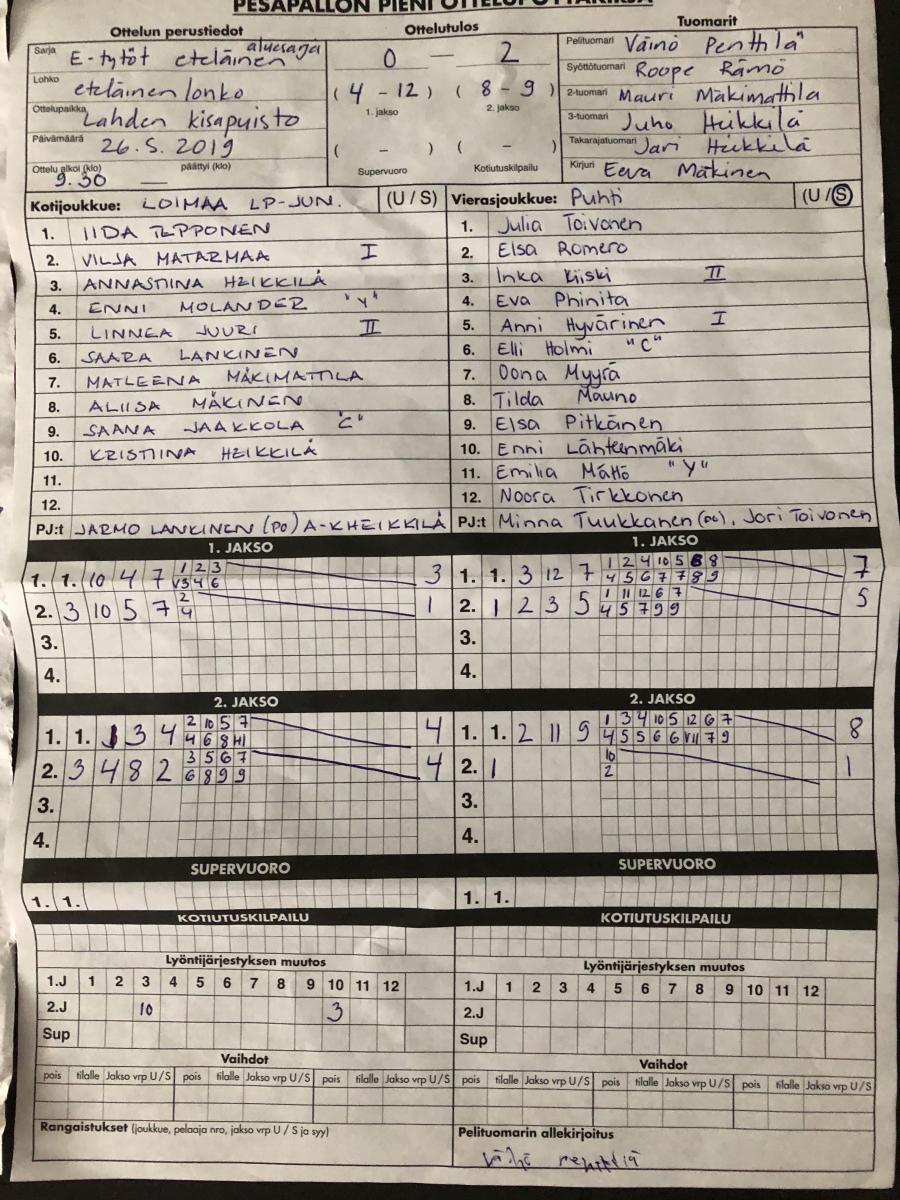 PESÄPALLON PIENI OTTELUPÖYTÄKIRJA
Ottelun perustiedot
Sarja E-tytöt eteläinen aluesarja
Lohko eteläinen lohko
Ottelupaikka Lahden kisapuisto
Päivämäärä 26.5.2019
Ottelu alkoi (klo) päättyi (klo)
9.30 —
Ottelutulos
0 — 2
( 4 - 12 ) ( 8 - 9 )
1. jakso 2. jakso
( - ) ( - )
Supervuoro Kotiutuskilpailu
Tuomarit
Pelituomari Väinö Penttilä
Syöttötuomari Roope Rämö
2-tuomari Mauri Mäkimattila
3-tuomari Juho Heikkilä
Takarajatuomari Jari Heikkilä
Kirjuri Eeva Mäkinen
Kotijoukkue: LOIMAA LP-JUN. (U / S)
1. IIDA TEPPONEN
2. VILJA MATARMAA I
3. ANNASTIINA HEIKKILÄ
4. ENNI MOLANDER "Y"
5. LINNEA JUURI II
6. SAARA LANKINEN
7. MATLEENA MÄKIMATTILA
8. ALIISA MÄKINEN
9. SAANA JAAKKOLA "C"
10. KRISTIINA HEIKKILÄ
11.
12.
PJ:t JARMO LANKINEN (PO) A-K HEIKKILÄ
Vierasjoukkue: Puhti (U / S)
1. Julia Toivonen
2. Elsa Romero
3. Inka Kiiski II
4. Eva Phinita
5. Anni Hyvärinen I
6. Elli Holmi "C"
7. Oona Myyrä
8. Tilda Mauno
9. Elsa Pitkänen
10. Enni Lähteenmäki
11. Emilia Mättö "Y"
12. Noora Tirkkonen
PJ:t Minna Tuukkanen (PO), Jori Toivonen
1. JAKSO
1. 1. 10 4 7 1 2 3 3
V3 4 6
2. 3 10 5 7 2 1
4
3.
4.
2. JAKSO
1. 1. 3 4 2 10 5 7 4
4 6 8
2. 3 4 8 2 3 5 6 7 4
6 8 9 9
3.
4.
SUPERVUORO
1. 1.
KOTIUTUSKILPAILU
Lyöntijärjestyksen muutos
1.J 1 2 3 4 5 6 7 8 9 10 11 12
2.J 10 3
Sup
Vaihdot
pois tilalle Jakso vrp U / S pois tilalle Jakso vrp U / S pois tilalle Jakso vrp U / S
Rangaistukset (joukkue, pelaaja nro, jakso vrp U / S ja syy)
1. JAKSO
1. 1. 3 12 7 1 2 4 10 5 8 7
4 5 6 7 7 8 9
2. 1 2 3 5 1 11 12 6 7 5
4 5 7 9 9
3.
4.
2. JAKSO
1. 1. 2 11 9 1 3 4 10 5 12 6 7 8
4 5 5 6 6 VII 7 9
2. 1 10 1
2
3.
4.
SUPERVUORO
1. 1.
KOTIUTUSKILPAILU
Lyöntijärjestyksen muutos
1.J 1 2 3 4 5 6 7 8 9 10 11 12
2.J
Sup
Vaihdot
pois tilalle Jakso vrp U / S pois tilalle Jakso vrp U / S pois tilalle Jakso vrp U / S
Pelituomarin allekirjoitus